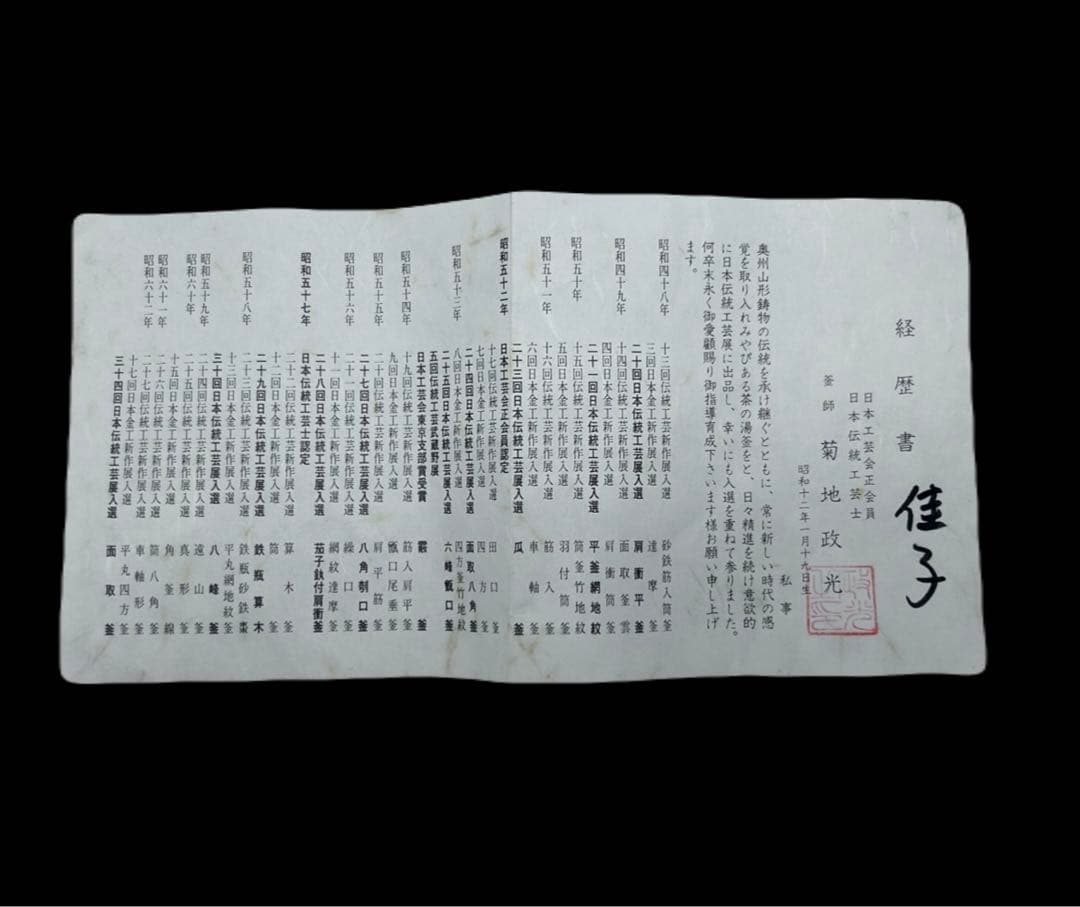 経歴書
佳子
日本工芸会正会員
日本伝統工芸士
釜師 菊地政光
昭和十二年一月十九日生
私事
奥州山形鋳物の伝統を承け継ぐとともに、常に新しい時代の感
覚を取り入れみやびある茶の湯釜をと、日々精進を続け意欲的
に日本伝統工芸展に出品し、幸いにも入選を重ねて参りました。
何卒末永く御愛顧賜り御指導育成下さいます様お願い申し上げ
ます。
昭和四十八年 十三回伝統工芸新作展入選 砂鉄筋入筒釜
三回日本金工新作展入選 達摩釜
二十回日本伝統工芸展入選 肩衝平釜
昭和四十九年 十四回伝統工芸新作展入選 面取釜雲
四回日本金工新作展入選 肩衝筒釜
二十一回日本伝統工芸展入選 平釜網地紋
昭和五十年 十五回伝統工芸新作展入選 筒釜竹地紋
五回日本金工新作展入選 羽付筒釜
昭和五十一年 十六回伝統工芸新作展入選 筋入釜
六回日本金工新作展入選 車軸釜
二十三回日本伝統工芸展入選 瓜釜
昭和五十二年 日本工芸会正会員認定
十七回伝統工芸新作展入選 田口釜
七回日本金工新作展入選 四方釜
二十四回日本伝統工芸展入選 面取八角釜
昭和五十三年 八回日本金工新作展入選 四方釜竹地紋
二十五回日本伝統工芸展入選 六峰甑口釜
五回伝統工芸武蔵野展
日本工芸会東京支部賞受賞 霰釜
昭和五十四年 十九回伝統工芸新作展入選 筋入肩平釜
九回日本金工新作展入選 甑口尾垂釜
昭和五十五年 二十回伝統工芸新作展入選 肩平筋釜
二十七回日本伝統工芸展入選 八角刳口釜
昭和五十六年 二十一回伝統工芸新作展入選 繰口釜
十一回日本金工新作展入選 網紋達摩釜
二十八回日本伝統工芸展入選 茄子鈇付肩衝釜
昭和五十七年 日本伝統工芸士認定
二十二回伝統工芸新作展入選 算木釜
十二回日本金工新作展入選 筒釜
二十九回日本伝統工芸展入選 鉄瓶算木
昭和五十八年 二十三回伝統工芸新作展入選 鉄瓶砂鉄棗
十三回日本金工新作展入選 平丸網地紋釜
三十回日本伝統工芸展入選 八峰釜
昭和五十九年 二十四回伝統工芸新作展入選 遠山釜
昭和六十年 二十五回伝統工芸新作展入選 真形釜
十五回日本金工新作展入選 角釜線
昭和六十一年 二十六回伝統工芸新作展入選 筒八角釜
昭和六十二年 二十七回伝統工芸新作展入選 車軸形釜
十七回日本金工新作展入選 平丸四方釜
三十四回日本伝統工芸展入選 面取釜